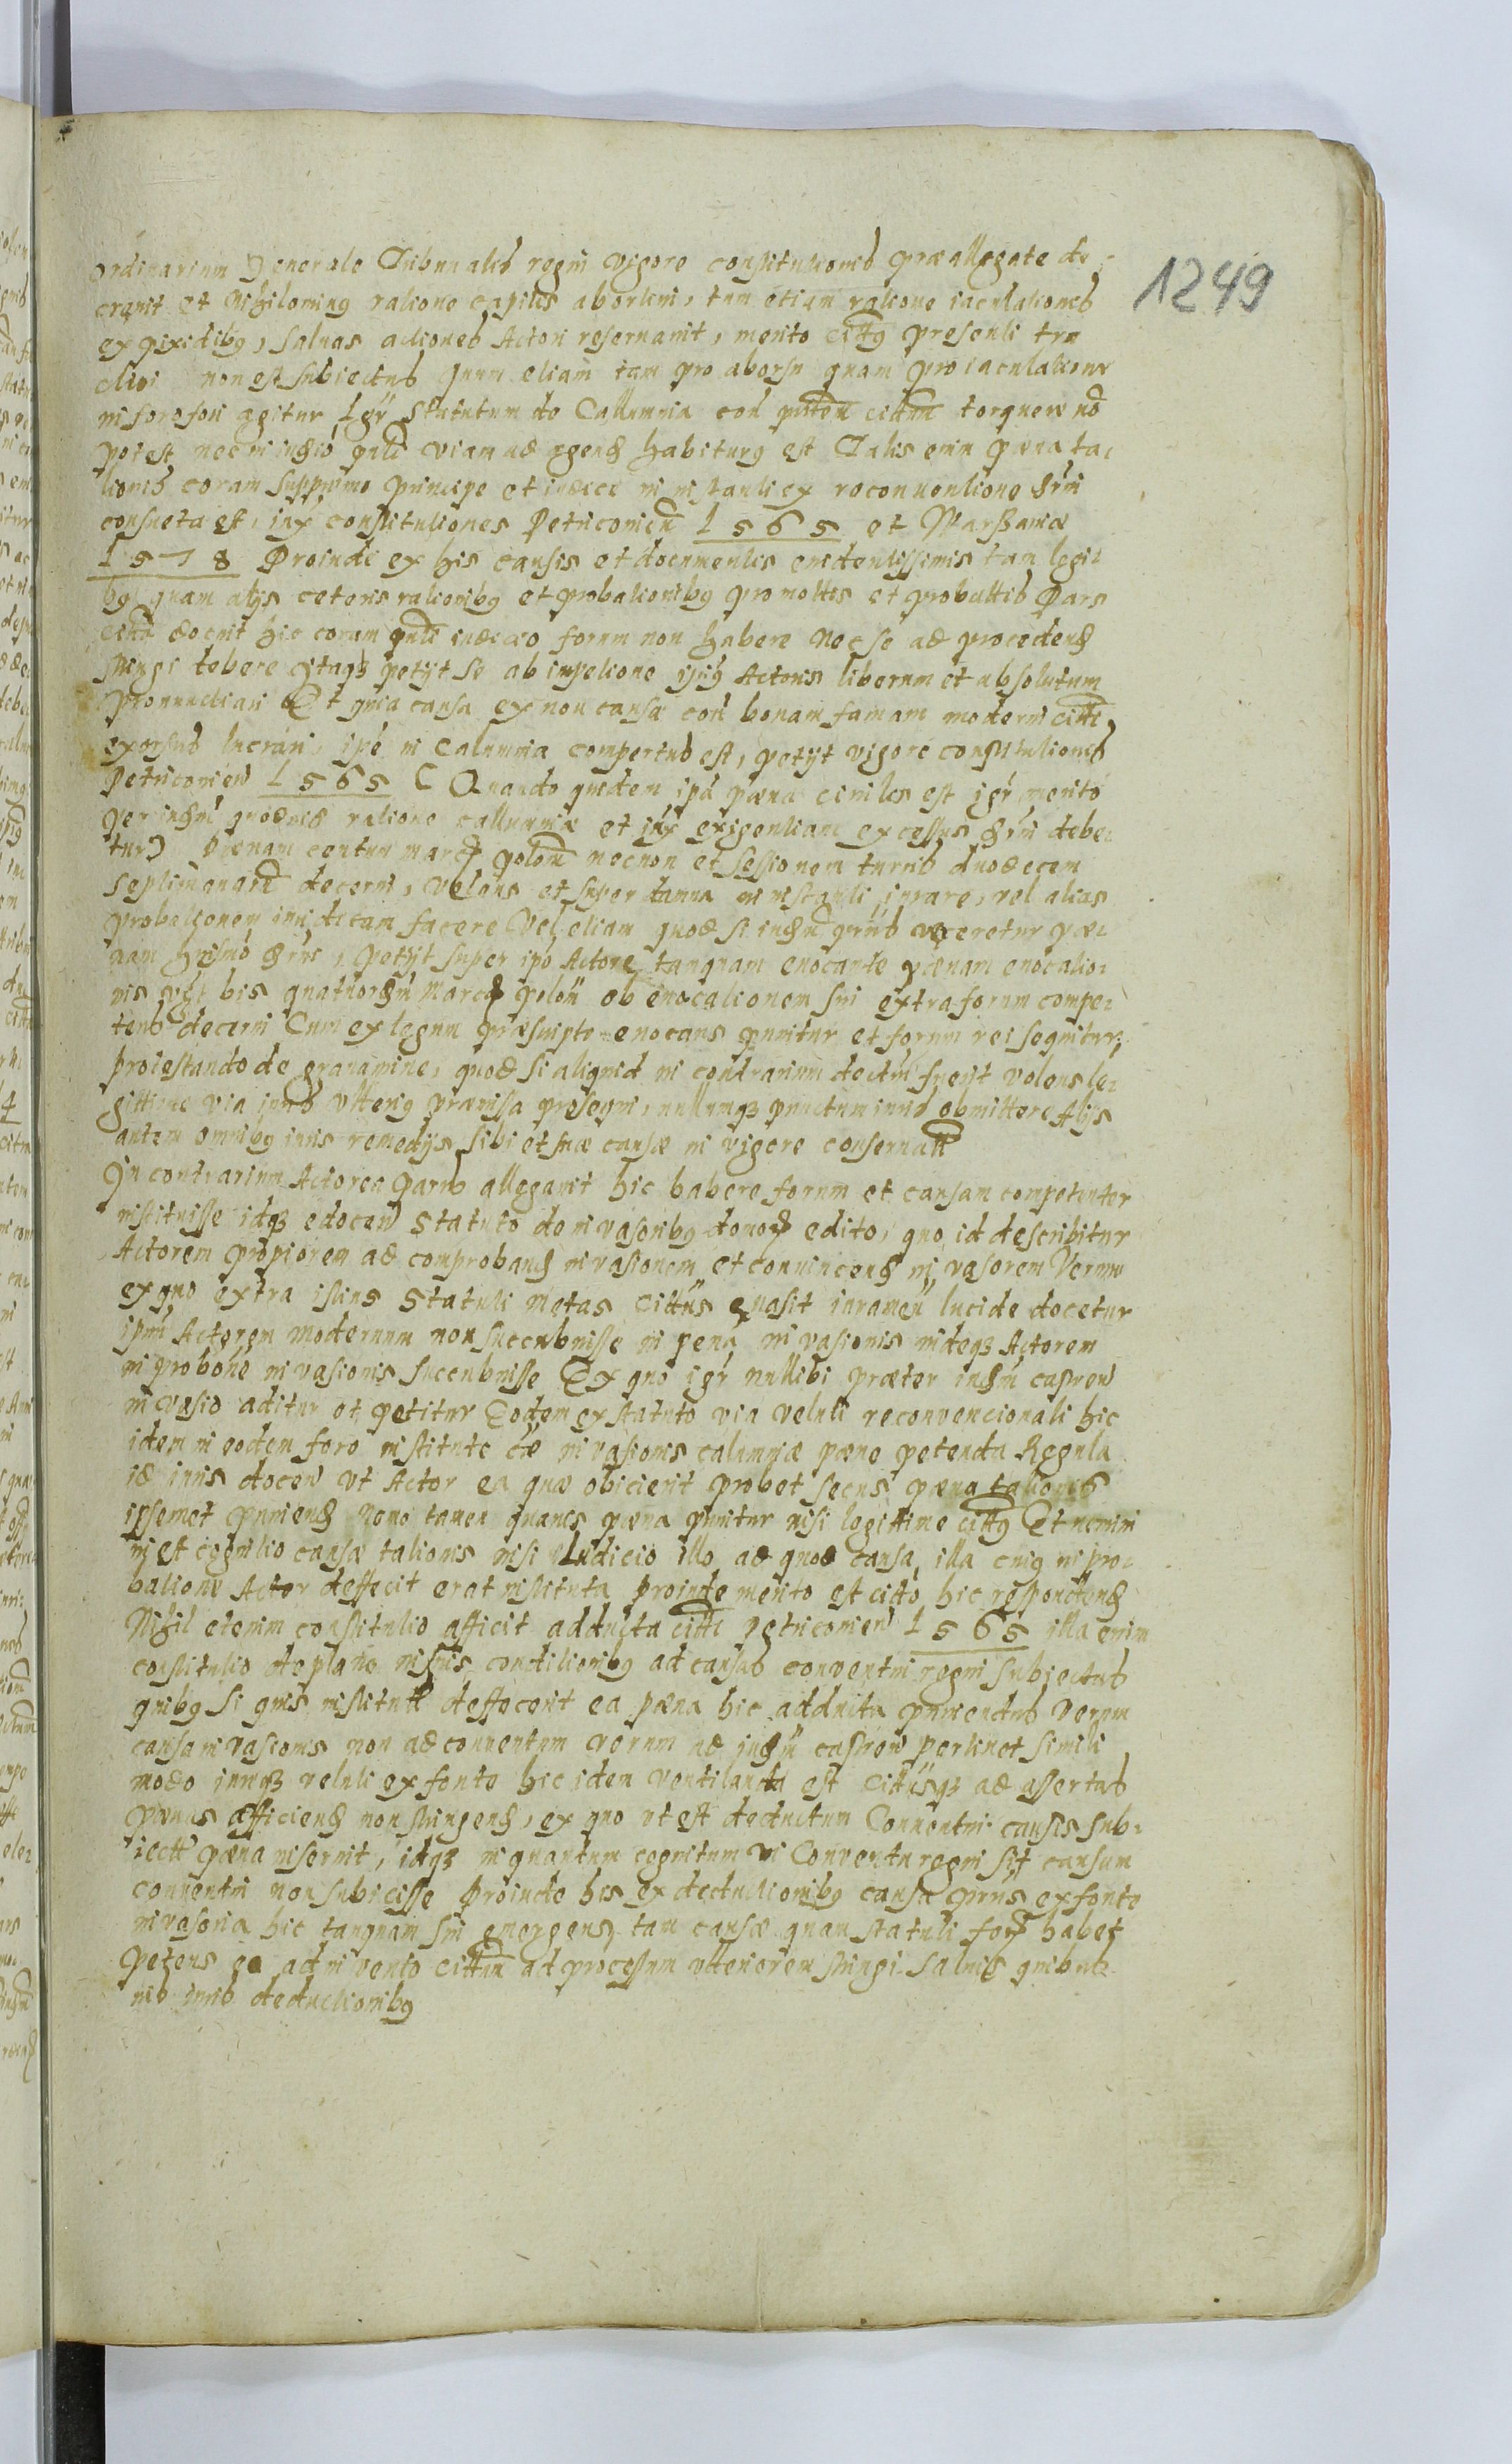 1249
ordinarium Generale Tribunalis regni vigore constitutionis præallegate de-
crevit et Nihilominus ratione capitis aborsivi, tum etiam ratione iaculationis
ex pixidibus, salvas actiones Actori reservavit, merito cittus presenti tra
ctivi non est subiectus quum etiam tam pro aborsu quam pro iaculatione
in foro fori agitur, Igr Statutum de Callumnia con pntem cittum torquere no
potest nec in indicio pnti viam ad agend habiturus est Talis enim pæna ta-
lionis coram suppremo Principe et iudice in instanti ex reconventione
consueta est, iux constitutiones Petricovien 1565 et Warssaviæ
1578 Proinde ex his causis et documentis evidentissimis tam legi-
bus quam alijs ceteris rationibus et probationibus promottis et probattis Pars
citta docuit hic coram pnti iudicio forum non habere Nec se ad procedend
stringi debere itaque petijt se ab impetione istius Actoris liberum et absolutum
pronunctiari Et quia causa ex non causa con bonam famam moderni citti
exorsus lucrari, ipe in Calumnia compertus est, petijt vigore constitutionis
Petricovien 1565 (Quando quidem ipa pæna civilis est igr merito
per indm quodvis ratione callumniæ et iux exigentiam excessus debe-
tur) Pænam centum marcar polon necnon et sessionem turris duodecem
septimanaru decerni, volens et super damna in instanti iurare, vel alias
probationem iuridicam facere Vel etiam quod si indm prius vereretur pæ-
nam petijt super ipo Actore tanquam evocante pænam evocatio-
nis vgt bis quatuordm Marcar polon ob evocationem sui extra forum compe-
tens decerni Cum ex legum præscripto evocans punitur et forum rei sequitur,
protestando de gravamine, quod si aliquid in contrarium dectm fuerit volens le-
gittime via iuris ulterius præmissa prosequi, nullumque punctum iuris obmittere Alijs
autem omnibus iuris remedijs sibi et suæ causæ in vigore conservatt
In contrarium Actorea Pars allegavit hic habere forum et causam competenter
instituisse idque edocen Statuto de invasoribus domor edito, quo id describitur
Actorem propiorem ad comproband invasionem et convincend invasorem Verum
ex quo extra istius Statuti Metas Cittus evasit iuramen lucide docetur
ipm Actorem modernum non succubuisse in pena invasionis indeque Actorem
in probone invasionis succubuisse Ex quo igr nullibi præter indm castren
invasio aditur et petitur Eodem ex statuto via veluti reconvencionali hic
idem in eodem foro institute invasionis calumniæ pæne petenda Regula
id iuris docen ut Actor ea quæ obicierit probet secus pæna talionis
ipsemet puniend Nono tamen quavis pæna punitur nisi legittime cittus Et nemini
est cognitio causæ talionis nisi Iudicio illo ad quod causa illa cuius in pro-
batione Actor deffecit erat instituta proinde merito est citto hic respondend
Nihil etenim constitutio afficit adducta citti Petricovien 1565 illa enim
constitutio de plano in suis conditionibus ad causas conventui regni subiectas
quibus si quis institutt deffecerit ea pæna hic adducta puniendus Verum
causa invasionis non ad conventum verum ad indm castren pertinet simili
modo iureque veluti ex fonte hic idem ventilanda est Cittusque ad assertas
pænas afficiend non stringend, ex quo ut est deductum Conventui causis sub-
iectt pæna inservit, idque in quantum cognitum in Conventu regni sit causam
conventui non subicisse Proinde his ex deductionibus causa prius ex fonte
invasoria hic tanquam emergens tam causæ quam statuti for habet
petens ea adinvento cittum ad processum ulteriorem stringi Salvis quibusvis
iuris deductionibus